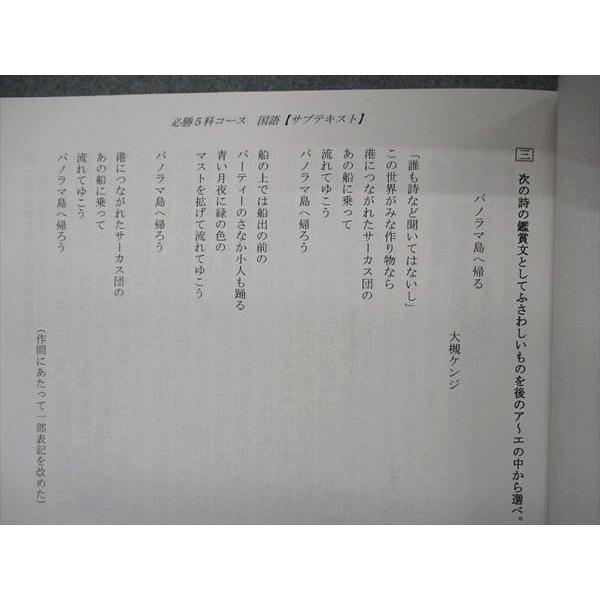 必勝5科コース 国語【サブテキスト】
三 次の詩の鑑賞文としてふさわしいものを後のア～エの中から選べ。
パノラマ島へ帰る
大槻ケンジ
「誰も詩など聞いてはないし」
この世界がみな作り物なら
港につながれたサーカス団の
あの船に乗って
流れてゆこう
パノラマ島へ帰ろう
船の上では船出の前の
パーティーのさなか小人も踊る
青い月夜に緑の色の
マストを拡げて流れてゆこう
パノラマ島へ帰ろう
港につながれたサーカス団の
あの船に乗って
流れてゆこう
パノラマ島へ帰ろう
(作問にあたって一部表記を改めた)